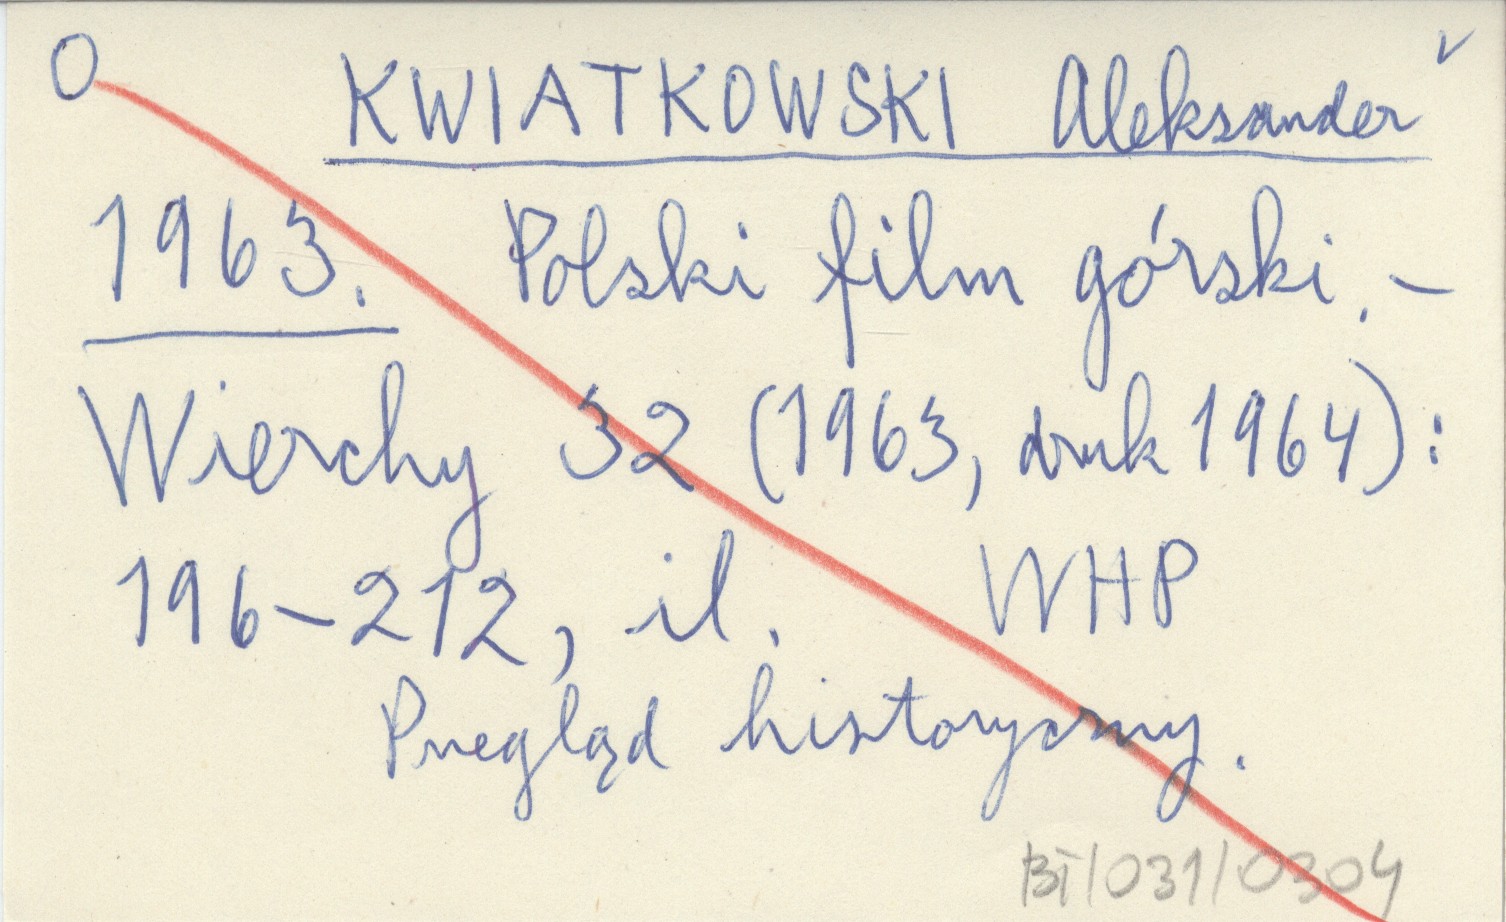 O KWIATKOWSKI Aleksander v
1963. Polski film górski. –
Wierchy 32 (1963, druk 1964):
196–212, il. WHP
Przegląd historyczny.
BT/031/0304